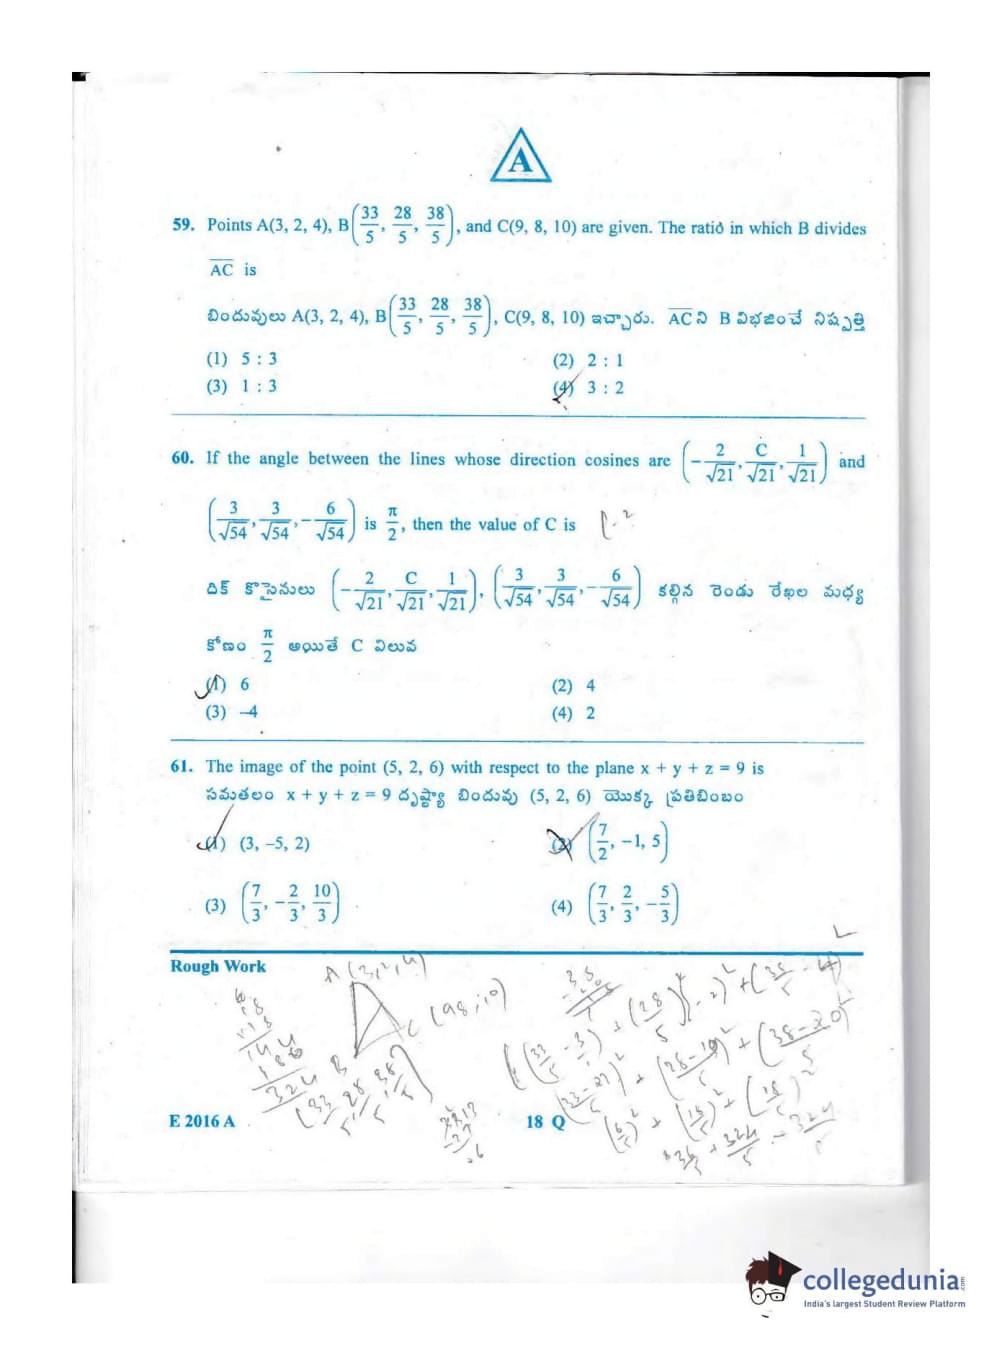 A
59. Points A(3, 2, 4), B(33/5, 28/5, 38/5), and C(9, 8, 10) are given. The ratio in which B divides
AC is
బిందువులు A(3, 2, 4), B(33/5, 28/5, 38/5), C(9, 8, 10) ఇచ్చారు. AC ని B విభజించే నిష్పత్తి
(1) 5 : 3 (2) 2 : 1
(3) 1 : 3 (4) 3 : 2
60. If the angle between the lines whose direction cosines are (-2/√21, C/√21, 1/√21) and
(3/√54, 3/√54, -6/√54) is π/2, then the value of C is
దిక్ కొసైనులు (-2/√21, C/√21, 1/√21), (3/√54, 3/√54, -6/√54) కల్గిన రెండు రేఖల మధ్య
కోణం π/2 అయితే C విలువ
(1) 6 (2) 4
(3) -4 (4) 2
61. The image of the point (5, 2, 6) with respect to the plane x + y + z = 9 is
సమతలం x + y + z = 9 దృష్ట్యా బిందువు (5, 2, 6) యొక్క ప్రతిబింబం
(1) (3, -5, 2) (2) (7/2, -1, 5)
(3) (7/3, -2/3, 10/3) (4) (7/3, 2/3, -5/3)
Rough Work
A (3,2,4)
E 2016 A 18 Q
collegedunia.com
India's largest Student Review Platform